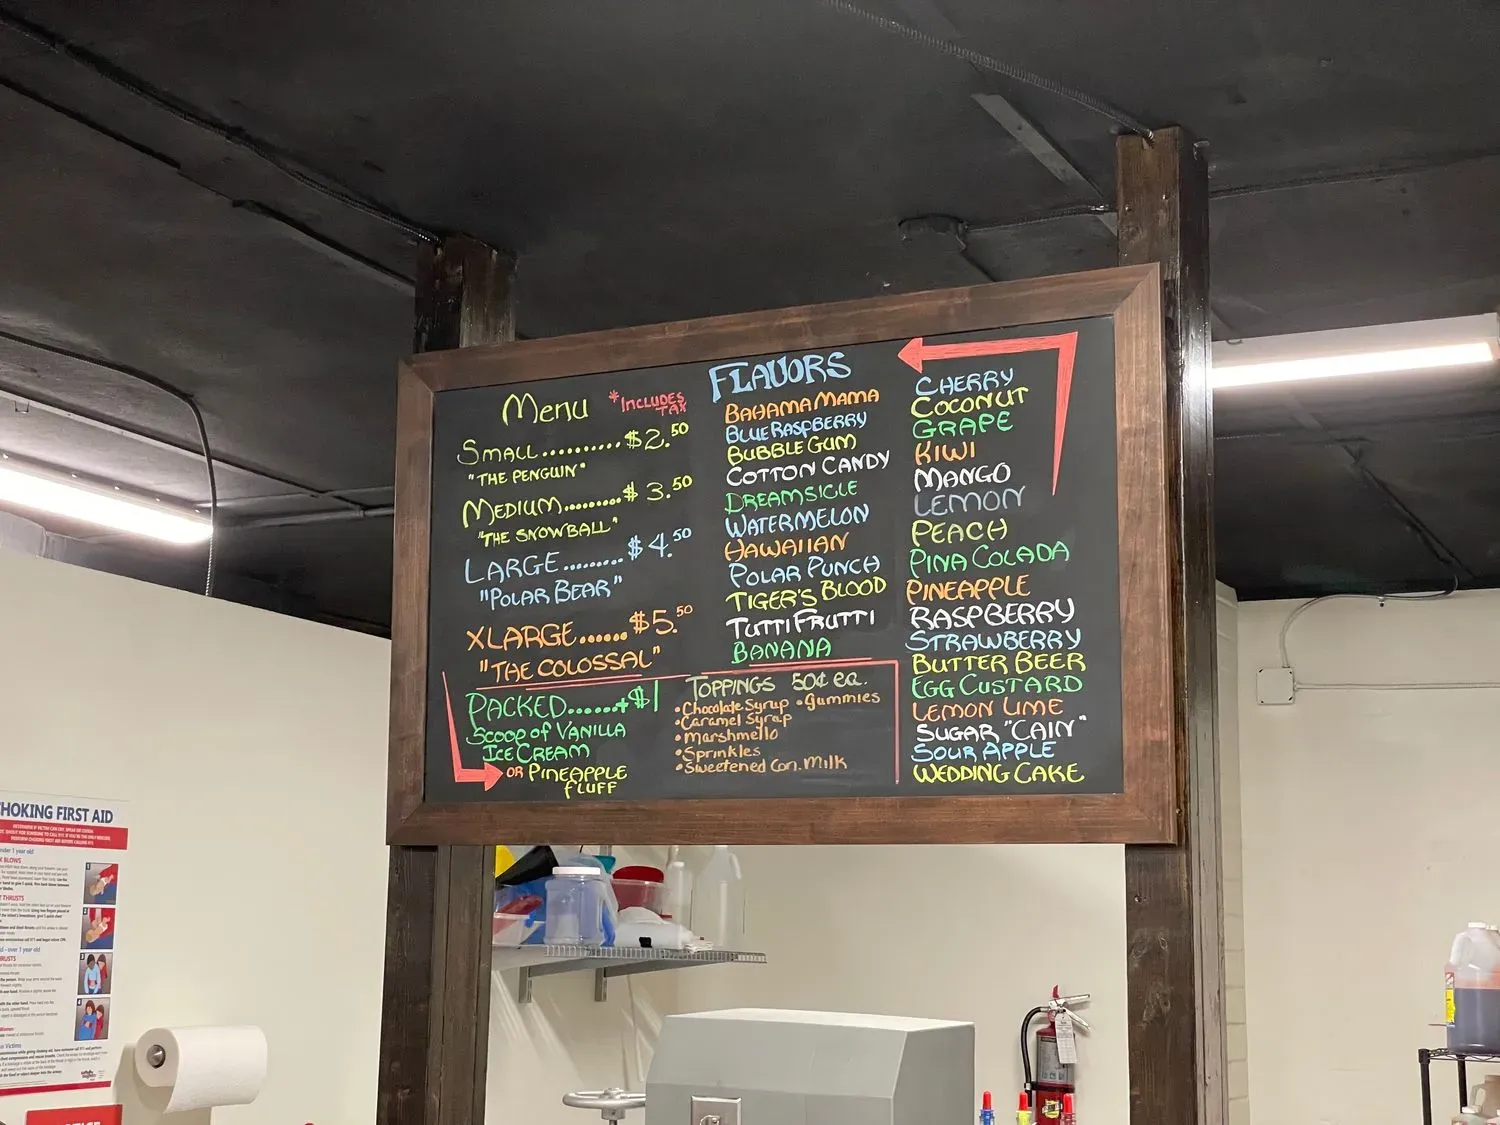 Menu *INCLUDES
TAX
SMALL..........$2.50
"THE PENGUIN"
MEDIUM.........$3.50
"THE SNOWBALL"
LARGE.........$4.50
"POLAR BEAR"
XLARGE......$5.50
"THE COLOSSAL"
PACKED......+$1
SCOOP OF VANILLA
ICE CREAM
OR PINEAPPLE
FLUFF
FLAVORS
BAHAMA MAMA
BLUE RASPBERRY
BUBBLE GUM
COTTON CANDY
DREAMSICLE
WATERMELON
HAWAIIAN
POLAR PUNCH
TIGER'S BLOOD
TUTTI FRUTTI
BANANA
TOPPINGS 50¢ ea.
•Chocolate Syrup •Gummies
•Caramel Syrup
•Marshmello
•Sprinkles
•Sweetened Con. Milk
CHERRY
COCONUT
GRAPE
KIWI
MANGO
LEMON
PEACH
PINA COLADA
PINEAPPLE
RASPBERRY
STRAWBERRY
BUTTER BEER
EGG CUSTARD
LEMON LIME
SUGAR "CAIN"
SOUR APPLE
WEDDING CAKE
HOKING FIRST AID
nder 1 year old
BLOWS
THRUSTS
d - over 1 year old
RUSTS
Victims